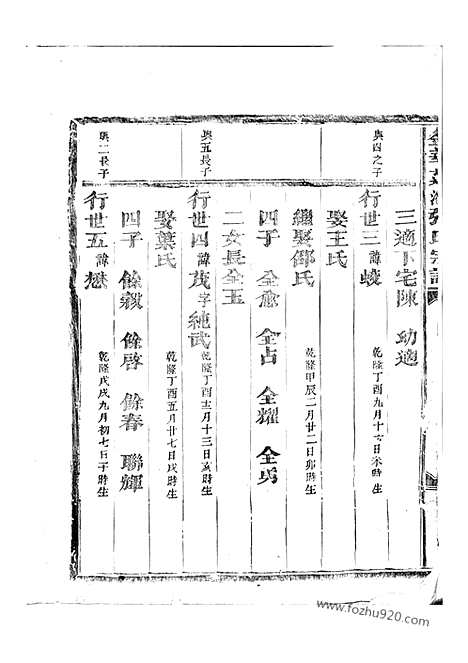 三適下宅陳 幼適
與四之子
行世三諱峻 乾隆丁酉九月十七日未時生
娶王氏
繼娶邵氏 乾隆甲辰二月廿二日卯時生
四子 全愈 全占 全耀 全勇
二女長全玉
與五長子
行世四諱茂字純武 乾隆丁酉五月十三日亥時生
娶葉氏 乾隆丁酉五月廿七日戌時生
四子 餘毅 餘啓 餘春 聯輝
與二長子
行世五諱懋 乾隆戊戌九月初七日子時生
www.fozhu920.com